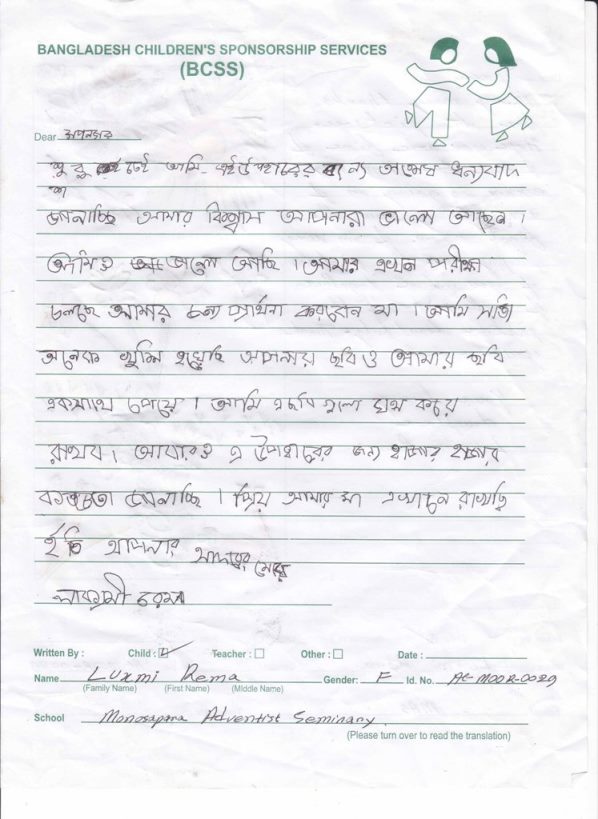 BANGLADESH CHILDREN'S SPONSORSHIP SERVICES
(BCSS)
Dear
শুরুতেই আমি এই উপহারের জন্য অশেষ ধন্যবাদ
জানাচ্ছি আমার বিশ্বাস আপনারা ভালো আছেন ।
আমিও ভালো আছি । আমার এখন পরীক্ষা
চলছে আমার জন্য প্রার্থনা করবেন মা । আমি সত্যি
অনেক খুশি হয়েছি আপনার ছবি ও আমার ছবি
একসাথে পেয়ে । আমি এ ছবি গুলো যত্ন করে
রাখব । আবারও এ উপহারের জন্য হাজার হাজার
কৃতজ্ঞতা জানাচ্ছি । প্রিয় আমার মা এখানে রাখছি
ইতি আপনার আদরের মেয়ে
লাকসমী রেমা
Written By : Child : Teacher : Other : Date :
Name Luxmi Rema Gender: F Id. No.
(Family Name) (First Name) (Middle Name)
School Monosapara Adventist Seminary
(Please turn over to read the translation)